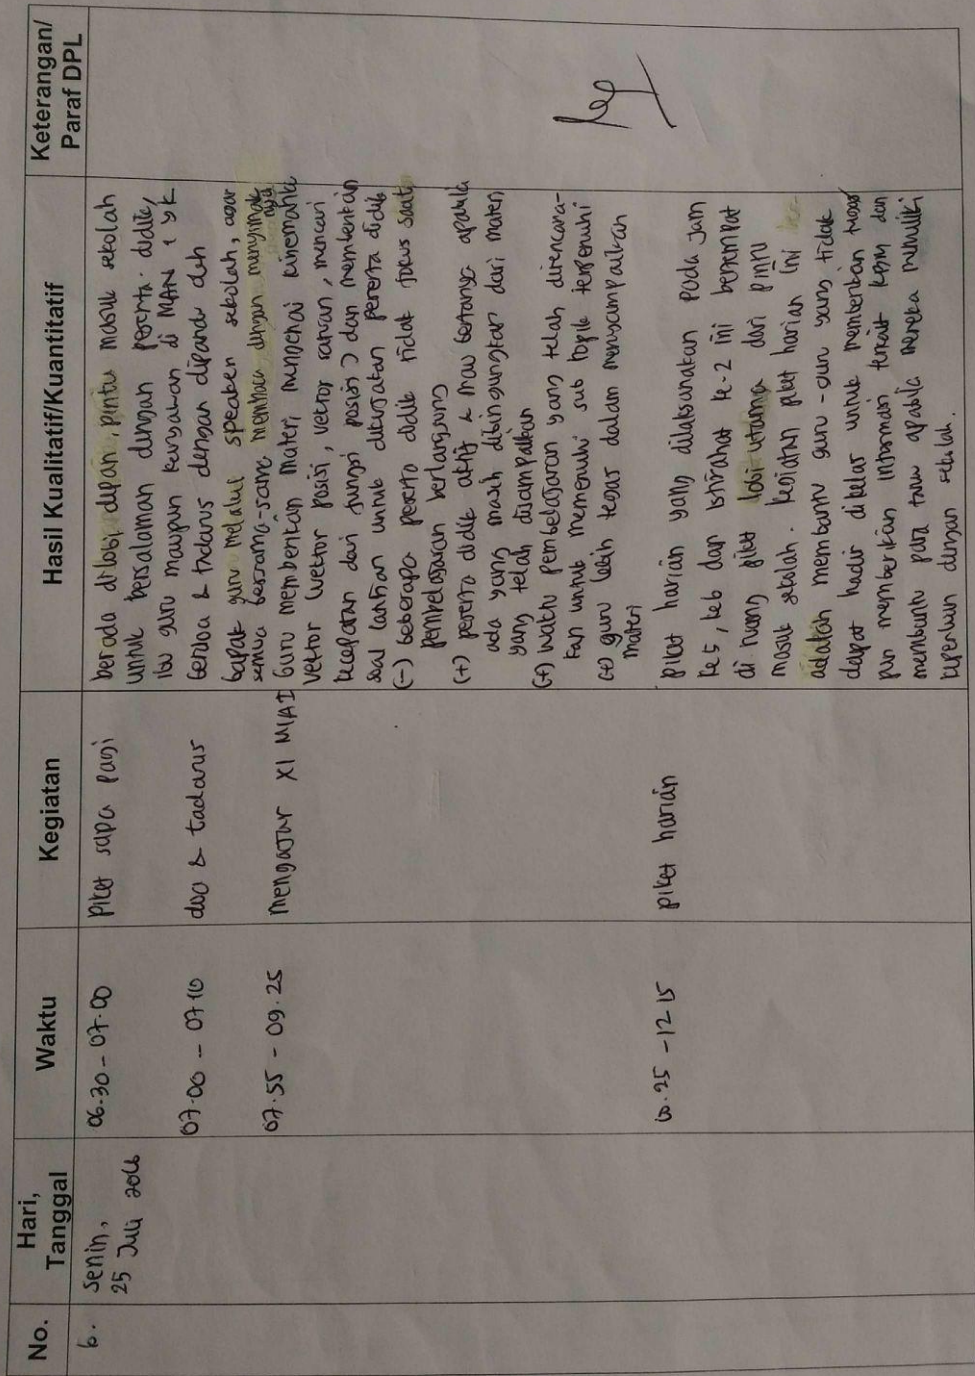 No.
Hari,
Tanggal
Waktu
Kegiatan
Hasil Kualitatif/Kuantitatif
Keterangan/
Paraf DPL
6.
Senin,
25 Juli 2016
06.30 - 07.00
Piket sapa pagi
berada di lobi depan, pintu masuk sekolah
untuk bersalaman dengan peserta didik,
ibu guru maupun karyawan di MAN 1 YK
07.00 - 07.10
doa & tadarus
berdoa & tadarus dengan dipandu oleh
bapak guru melalui speaker sekolah, agar
semua bersama-sama membaca dengan menyimak
07.55 - 09.25
mengajar XI MIA 1
Guru memberikan materi mengenai kinematika
vektor (vektor posisi, vektor satuan, mencari
kecepatan dari fungsi posisi) dan memberikan
soal latihan untuk dikerjakan peserta didik
(-) beberapa peserta didik tidak fokus saat
pembelajaran berlangsung
(+) peserta didik aktif & mau bertanya apabila
ada yang masih dibingungkan dari materi
yang telah disampaikan
(+) waktu pembelajaran yang telah direncana-
kan untuk memenuhi sub topik terpenuhi
(+) guru lebih tegas dalam menyampaikan
materi
10.25 - 12.15
piket harian
piket harian yang dilaksanakan pada jam
ke 5, ke6 dan istirahat ke-2 ini bertempat
di ruang piket lobi utama dari pintu
masuk sekolah. Kegiatan piket harian ini
adalah membantu guru-guru yang tidak
dapat hadir di kelas untuk memberikan tugas
pun memberikan informasi terkait KBM dan
membantu para tamu apabila mereka memiliki
keperluan dengan sekolah.